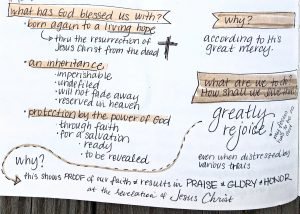 what has God blessed us with?
· born again to a living hope
↳ thru the resurrection of
Jesus Christ from the dead
· an inheritance:
· imperishable
· undefiled
· will not fade away
· reserved in heaven
· protection by the power of God
· through faith
· for a salvation
· ready
· to be revealed
why?
according to His
great mercy.
what are we to do?
How shall we
greatly
rejoice
even when distressed by
various trials
why?
this shows PROOF of our faith & results in PRAISE & GLORY & HONOR
at the revelation of Jesus Christ